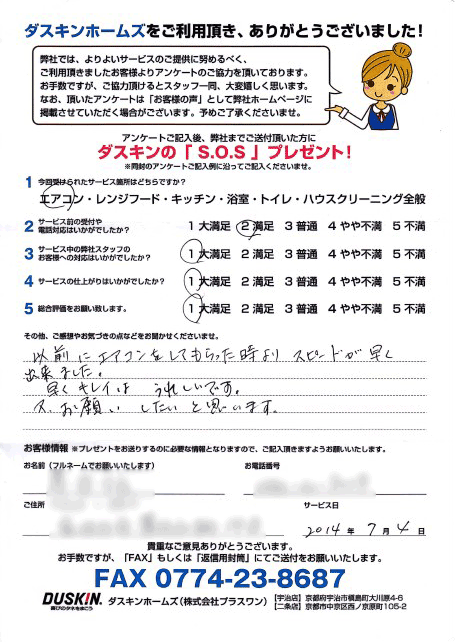 ダスキンホームズをご利用頂き、ありがとうございました!
弊社では、よりよいサービスのご提供に努めるべく、
ご利用頂きましたお客様よりアンケートのご協力を頂いております。
お手数ですが、ご協力頂けるとスタッフ一同、大変嬉しく思います。
なお、頂いたアンケートは「お客様の声」として弊社ホームページに
掲載させていただく場合がございます。予めご了承くださいませ。
アンケートご記入後、弊社までご送付頂いた方に
ダスキンの「S.O.S」プレゼント!
※同封のアンケートご記入例に沿ってご記入くださいませ。
1 今回受けられたサービス箇所はどちらですか?
エアコン・レンジフード・キッチン・浴室・トイレ・ハウスクリーニング全般
2 サービス前の受付や
電話対応はいかがでしたか?
1 大満足 2 満足 3 普通 4 やや不満 5 不満
3 サービス中の弊社スタッフの
お客様への対応はいかがでしたか?
1 大満足 2 満足 3 普通 4 やや不満 5 不満
4 サービスの仕上がりはいかがでしたか?
1 大満足 2 満足 3 普通 4 やや不満 5 不満
5 総合評価をお願い致します。
1 大満足 2 満足 3 普通 4 やや不満 5 不満
その他、ご感想やお気づきの点などをお聞かせくださいませ。
以前にエアコンをしてもらった時より スピードが早く
出来ました。
早くキレイは うれしいです。
又、お願いしたいと思います。
お客様情報 ※プレゼントをお送りするのに必要な情報となりますので、ご記入頂きますようお願いいたします。
お名前(フルネームでお願いいたします)
お電話番号
ご住所
サービス日
2014 年 7 月 4 日
貴重なご意見ありがとうございます。
お手数ですが、「FAX」もしくは「返信用封筒」にてご送付をお願いいたします。
FAX 0774-23-8687
DUSKIN
喜びのタネをまこう
ダスキンホームズ(株式会社プラスワン)
[宇治店] 京都府宇治市槇島町大川原4-6
[二条店] 京都市中京区西ノ京原町105-2